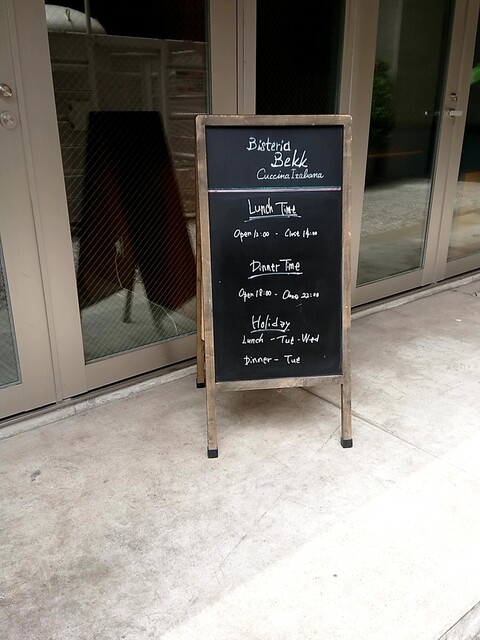 Bisteria
Bekk
Cuccina Italiana
Lunch Time
Open 12:00 - Close 14:00
Dinner Time
Open 18:00 - Close 22:00
Holiday
Lunch - Tue - Wed
Dinner - Tue